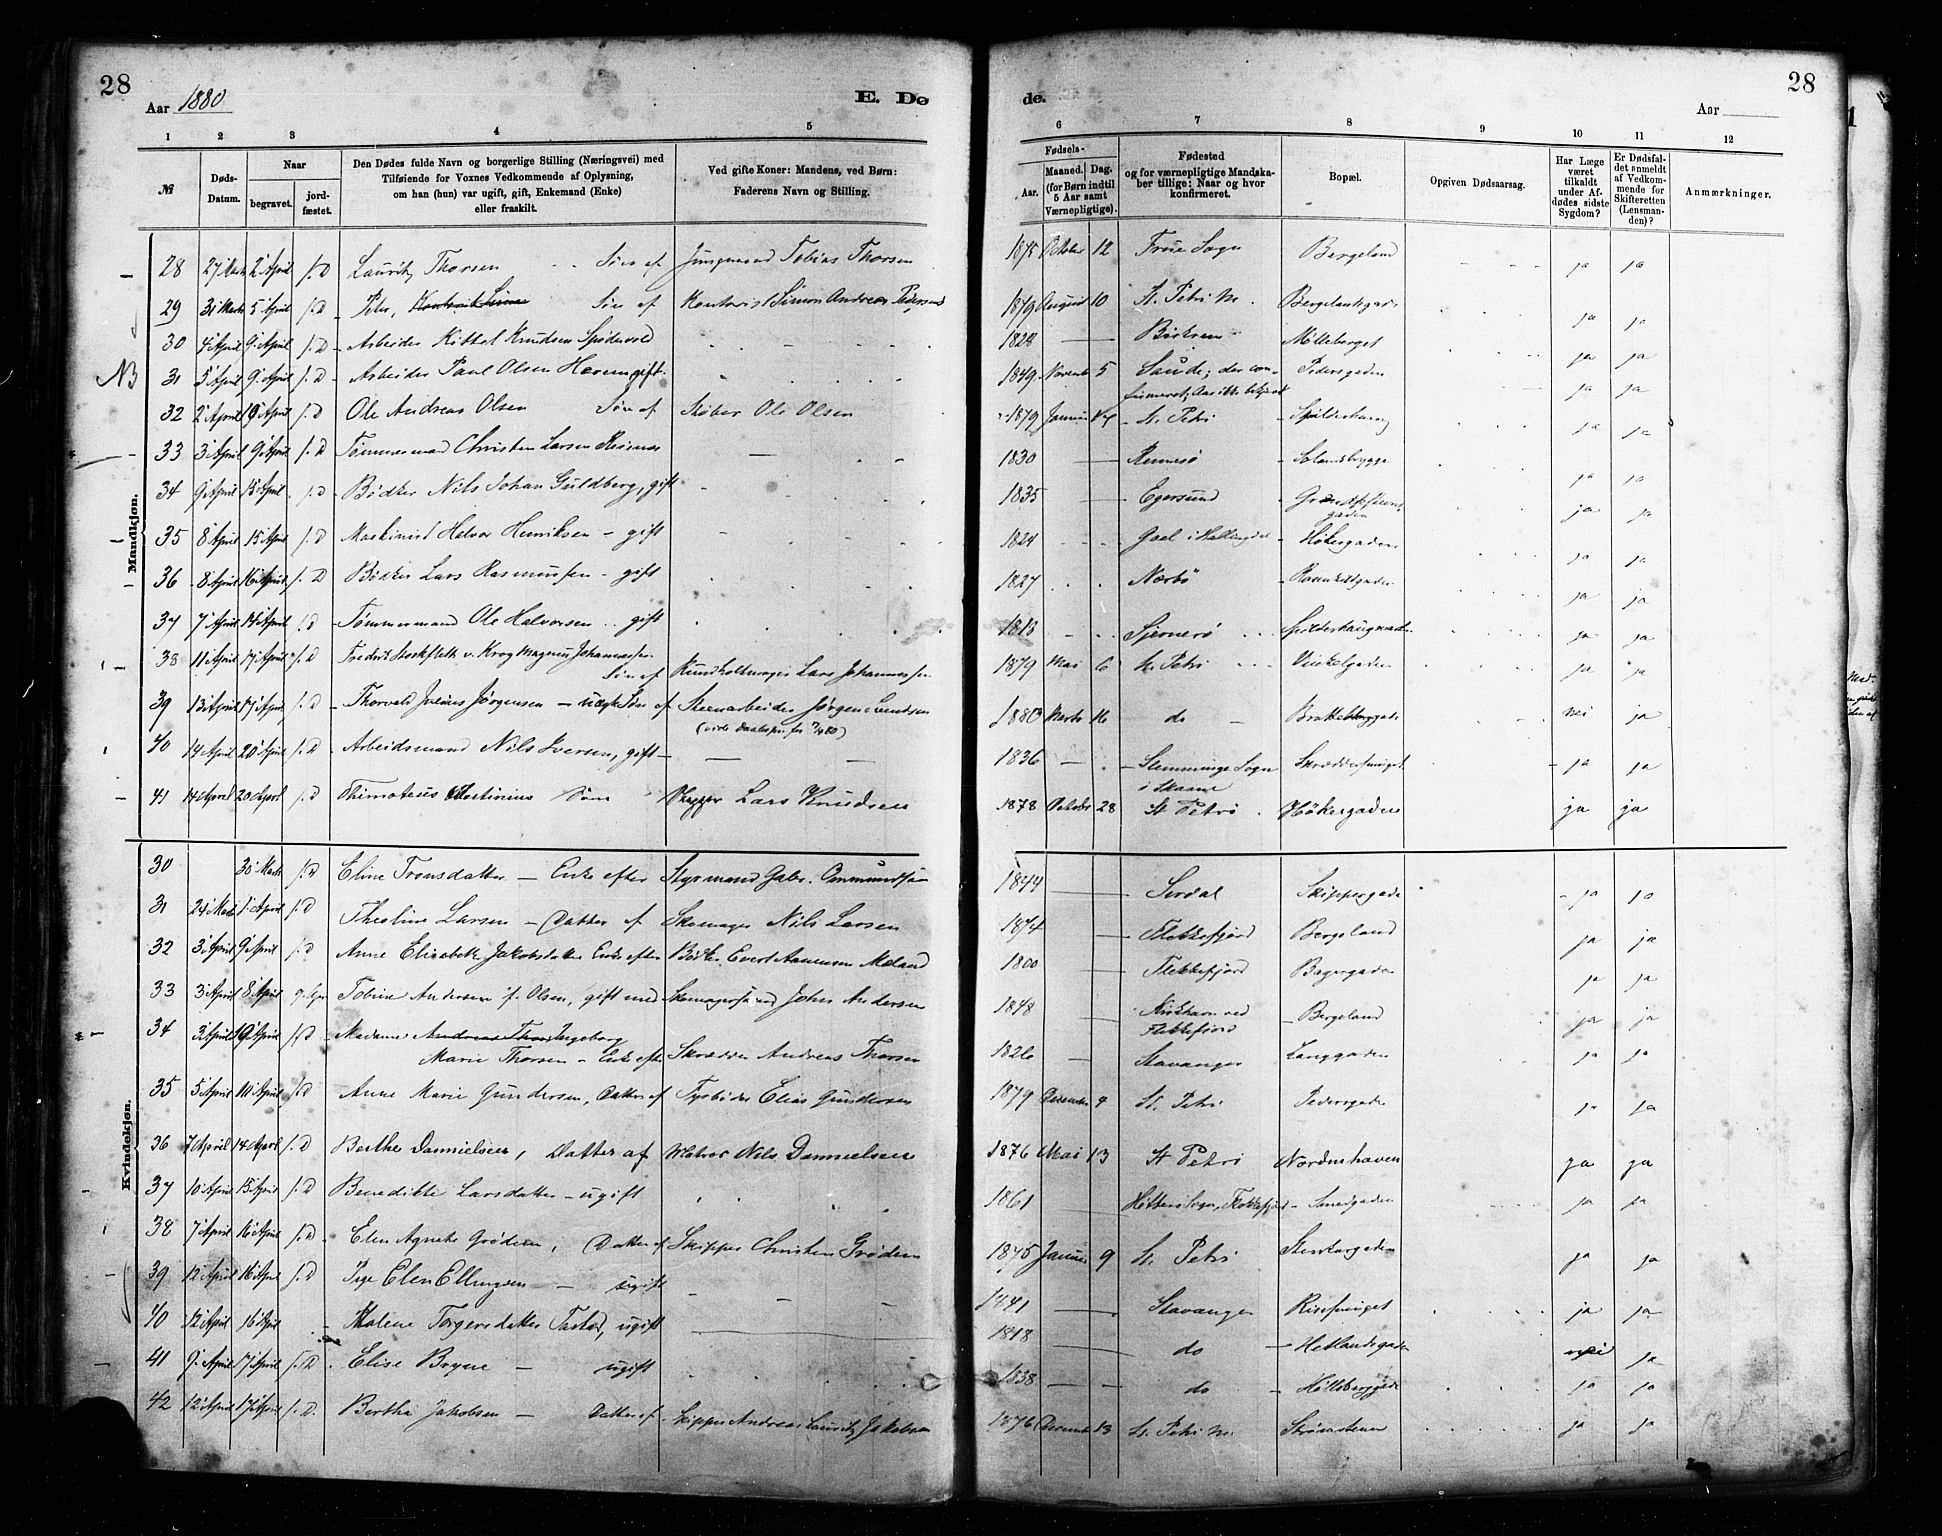 28
Aar 1880
E. Dø
de.
Aar
28
1 2 3 4 5 6 7 8 9 10 11 12
№
Døds-Datum.
Naar
begravet.
jord-fæstet.
Den Dødes fulde Navn og borgerlige Stilling (Næringsvei) med
Tilføiende for Voxnes Vedkommende af Oplysning,
om han (hun) var ugift, gift, Enkemand (Enke)
eller fraskilt.
Ved gifte Koner: Mandens, ved Børn:
Faderens Navn og Stilling.
Fødsels-
Aar.
Maaned. Dag.
(for Børn indtil
5 Aar samt
Værnepligtige).
Fødested
og for værnepligtige Mandska-
ber tillige: Naar og hvor
konfirmeret.
Bopæl.
Opgiven Dødsaarsag.
Har Læge
været
tilkaldt
under Af-
dødes sidste
Sygdom?
Er Dødsfal-
det anmeldt
af Vedkom-
mende for
Skifteretten
(Lensman-
den)?
Anmærkninger.
Mandkjøn.
28 27 Marts 2 April f. D Lauritz Thorsen Søn af Jungmand Tobias Thorsen 1875 October 12 Frue Sogn Bergeland ja ja
29 31 Marts 5 April f. D Peter, Søn af Kontorist Simon Andreas Pedersen 1879 August 10 St. Petri M. Bergelandsgad. ja ja
30 4 April 9 April f. D Arbeider Kittel Knudsen 1824 Møllebjerget ja ja
NB 31 5 April 9 April f. D Arbeider Paul Olsen gift 1849 Novemb 5 Saude; der con- Pedersgaden ja ja
32 2 April 9 April f. D Ole Andreas Olsen Søn af Støber Ole Olsen 1879 Januar St. Petri Spilderhaug ja ja
33 3 April 9 April f. D Tømmermand Christen Larsen 1830 Rennesø ja ja
34 9 April 15 April f. D Bødker Nils Johan Guldberg, gift 1835 Egersund ja ja
35 8 April 15 April f. D Maskinist Halvor Henriksen - gift 1824 Goel i Hallingdal Høkergaden ja ja
36 8 April 16 April f. D Bødker Lars Rasmussen - gift 1827 Nærbø ja ja
37 7 April 14 April f. D Tømmermand Ole Halvorsen gift 1813 Sjernerø ja ja
38 11 April 17 April f. D Fredrik Stockfleth v. Krog Magnus Johannessen
Søn af Lars Johannessen 1879 Mai 6 St. Petri Vinkelgaden ja ja
39 13 April 17 April f. D Thorvald Julius Jørgensen - uægte Søn af Stenarbeider Jørgen 1880 Marts 16 do nei ja
40 14 April 20 April f. D Arbeidsmand Nils Iversen, gift 1836 Stemminge Sogn Skræddersmuget ja ja
i Skaane
41 14 April 20 April f. D Thimoteus Martinius Søn Skipper Lars Knudsen 1878 October 28 St Petri Høkergaden ja ja
Kvindekjøn.
30 30 Marts f. D Eline Tronsdatter - Enke efter Styrmand Gabr. Ommundsen 1844 Sirdal Skippergade ja ja
31 24 Marts 1 April f. D Theoline Larsen - Datter af Skomager Nils Larsen 1874 Flekkefjord Bergeland ja ja
32 3 April 9 April f. D Anne Elisabeth Jakobsdatter Enke efter Bødker Evert Aanensen Meland 1800 Flekkefjord Bagergaden ja ja
33 3 April 8 April Tobine Andersen f. Olsen, gift med Skomagersvend John Andersen 1848 ved Bergeland ja ja
Flekkefjord
34 3 April 10 April f. D Madame Ingeborg
Marie Thorsen - Enke efter Skrædder Andreas Thorsen 1826 Stavanger Langgaden ja ja
35 5 April 10 April f. D Anne Marie Gundersen, Datter af Fyrbøder Elias Gundersen 1879 December 4 St. Petri Pedersgade ja ja
36 7 April 14 April f. D Berthe Dannielsen, Datter af Matros Nils Dannielsen 1876 Mai 13 St Petri Nordenhaven ja ja
37 10 April 15 April f. D Benedikte Larsdatter - ugift 1861 Hitterø Sogn, Flekkefjord Smedgaden ja ja
38 7 April 16 April f. D Elen Agnete Grødem, Datter af Skipper Christen Grødem 1875 Januar 9 St. Petri ja ja
39 12 April 16 April f. D Pige Elen Ellingsen - ugift 1841 Stavanger ja ja
40 12 April 16 April Malene Torgersdatter Tastad, ugift 1818 do Hetlandsgaden nei ja
41 9 April 17 April f. D. Elise Bryne - ugift 1838 do ja ja
42 12 April 17 April f. D. Bertha Jakobsen - Datter af Skipper Andreas Lauritz Jakobsen 1876 December 13 St. Petri M. Strømstenen ja ja